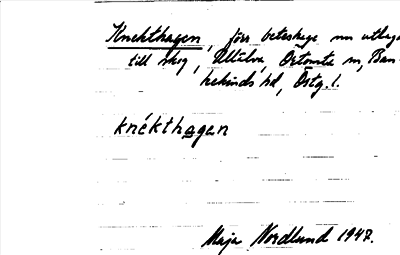 Knekthagen, förr beteshage nu utlagd
till skog, Ullälva, Örtomta sn, Ban-
kekinds hd, Östg. l.
knékthagen
Maja Nordlund 1947.